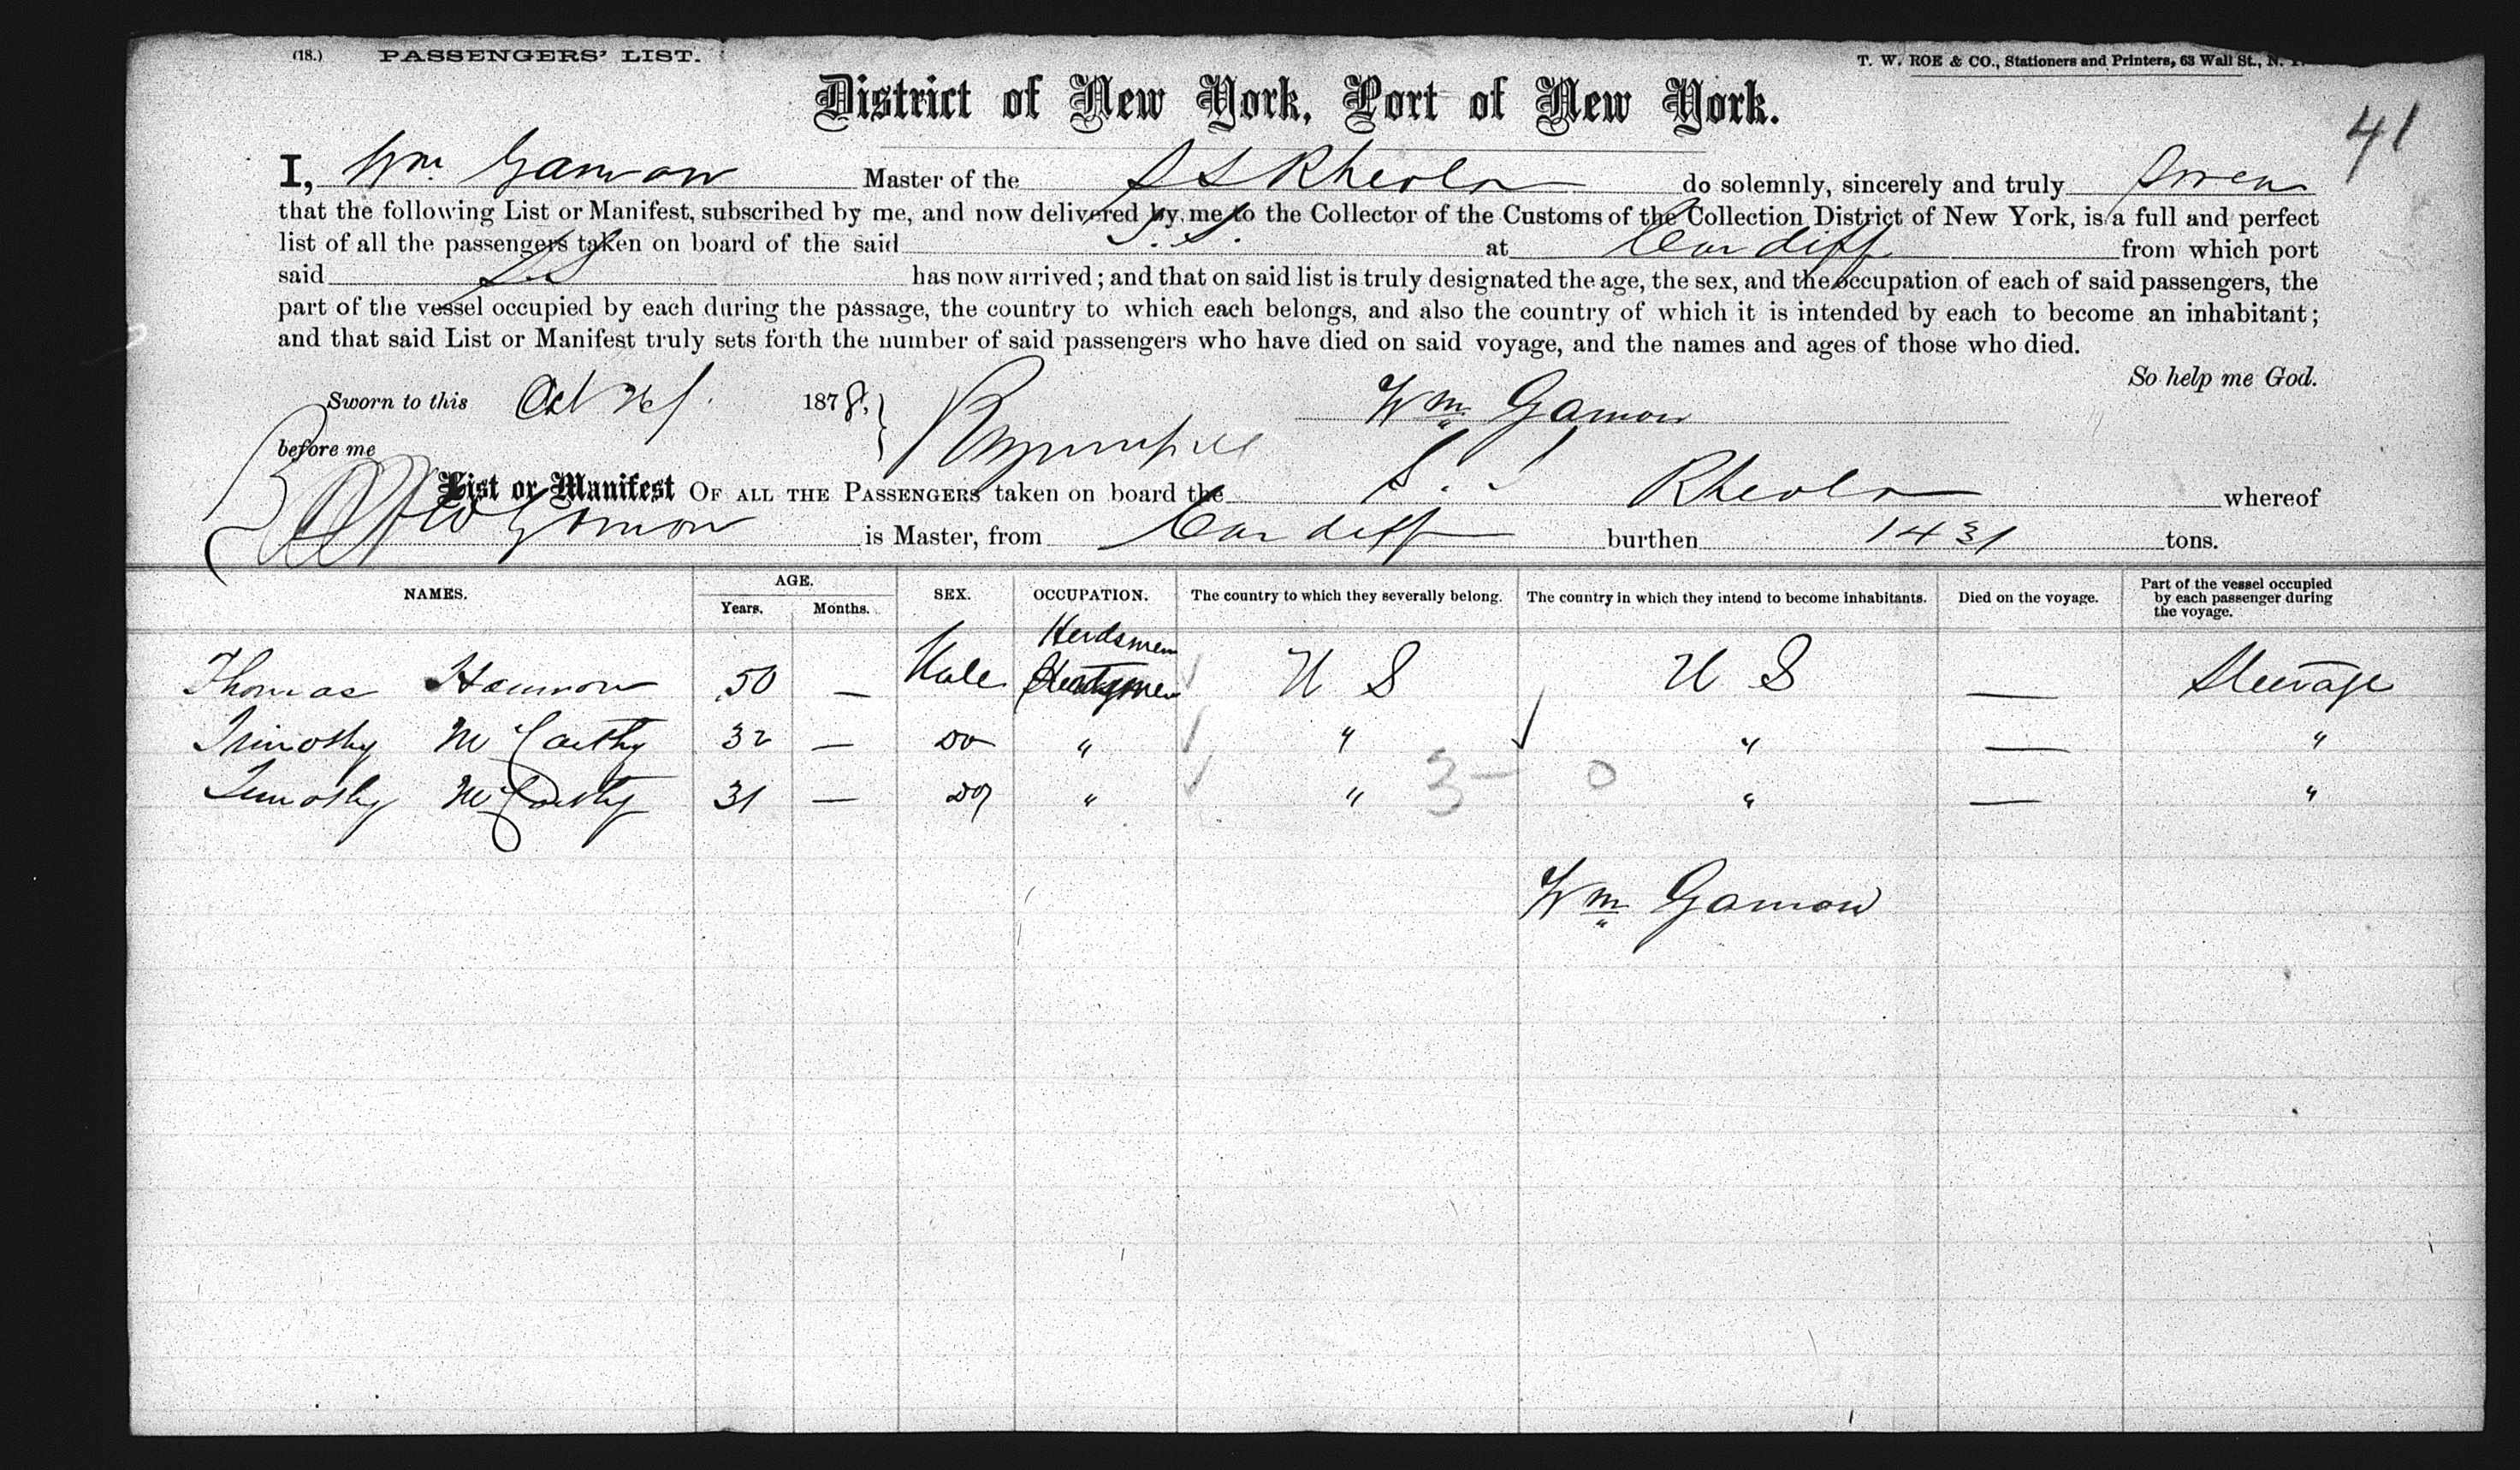 (18.) PASSENGERS' LIST. T. W. ROE & CO., Stationers and Printers, 63 Wall St., N. Y.
District of New York, Port of New York.
41
I, Wm Gamon Master of the SS Rheola do solemnly, sincerely and truly Swear
that the following List or Manifest, subscribed by me, and now delivered by me to the Collector of the Customs of the Collection District of New York, is a full and perfect
list of all the passengers taken on board of the said S.S. at Cardiff from which port
said SS has now arrived; and that on said list is truly designated the age, the sex, and the occupation of each of said passengers, the
part of the vessel occupied by each during the passage, the country to which each belongs, and also the country of which it is intended by each to become an inhabitant;
and that said List or Manifest truly sets forth the number of said passengers who have died on said voyage, and the names and ages of those who died.
So help me God.
Sworn to this Oct 1878. Wm Gamon
before me
List or Manifest OF ALL THE PASSENGERS taken on board the S. S Rheola whereof
Gamon is Master, from Cardiff burthen 1431 tons.
NAMES. AGE. Years. Months. SEX. OCCUPATION. The country to which they severally belong. The country in which they intend to become inhabitants. Died on the voyage. Part of the vessel occupied by each passenger during the voyage.
Herdsmen
Thomas Hannon 50 — Male U S U S — Steerage
Timothy McCarthy 32 — Do " " " — "
Timothy McCarthy 31 — Do " " " — "
3 — 0
Wm Gamon